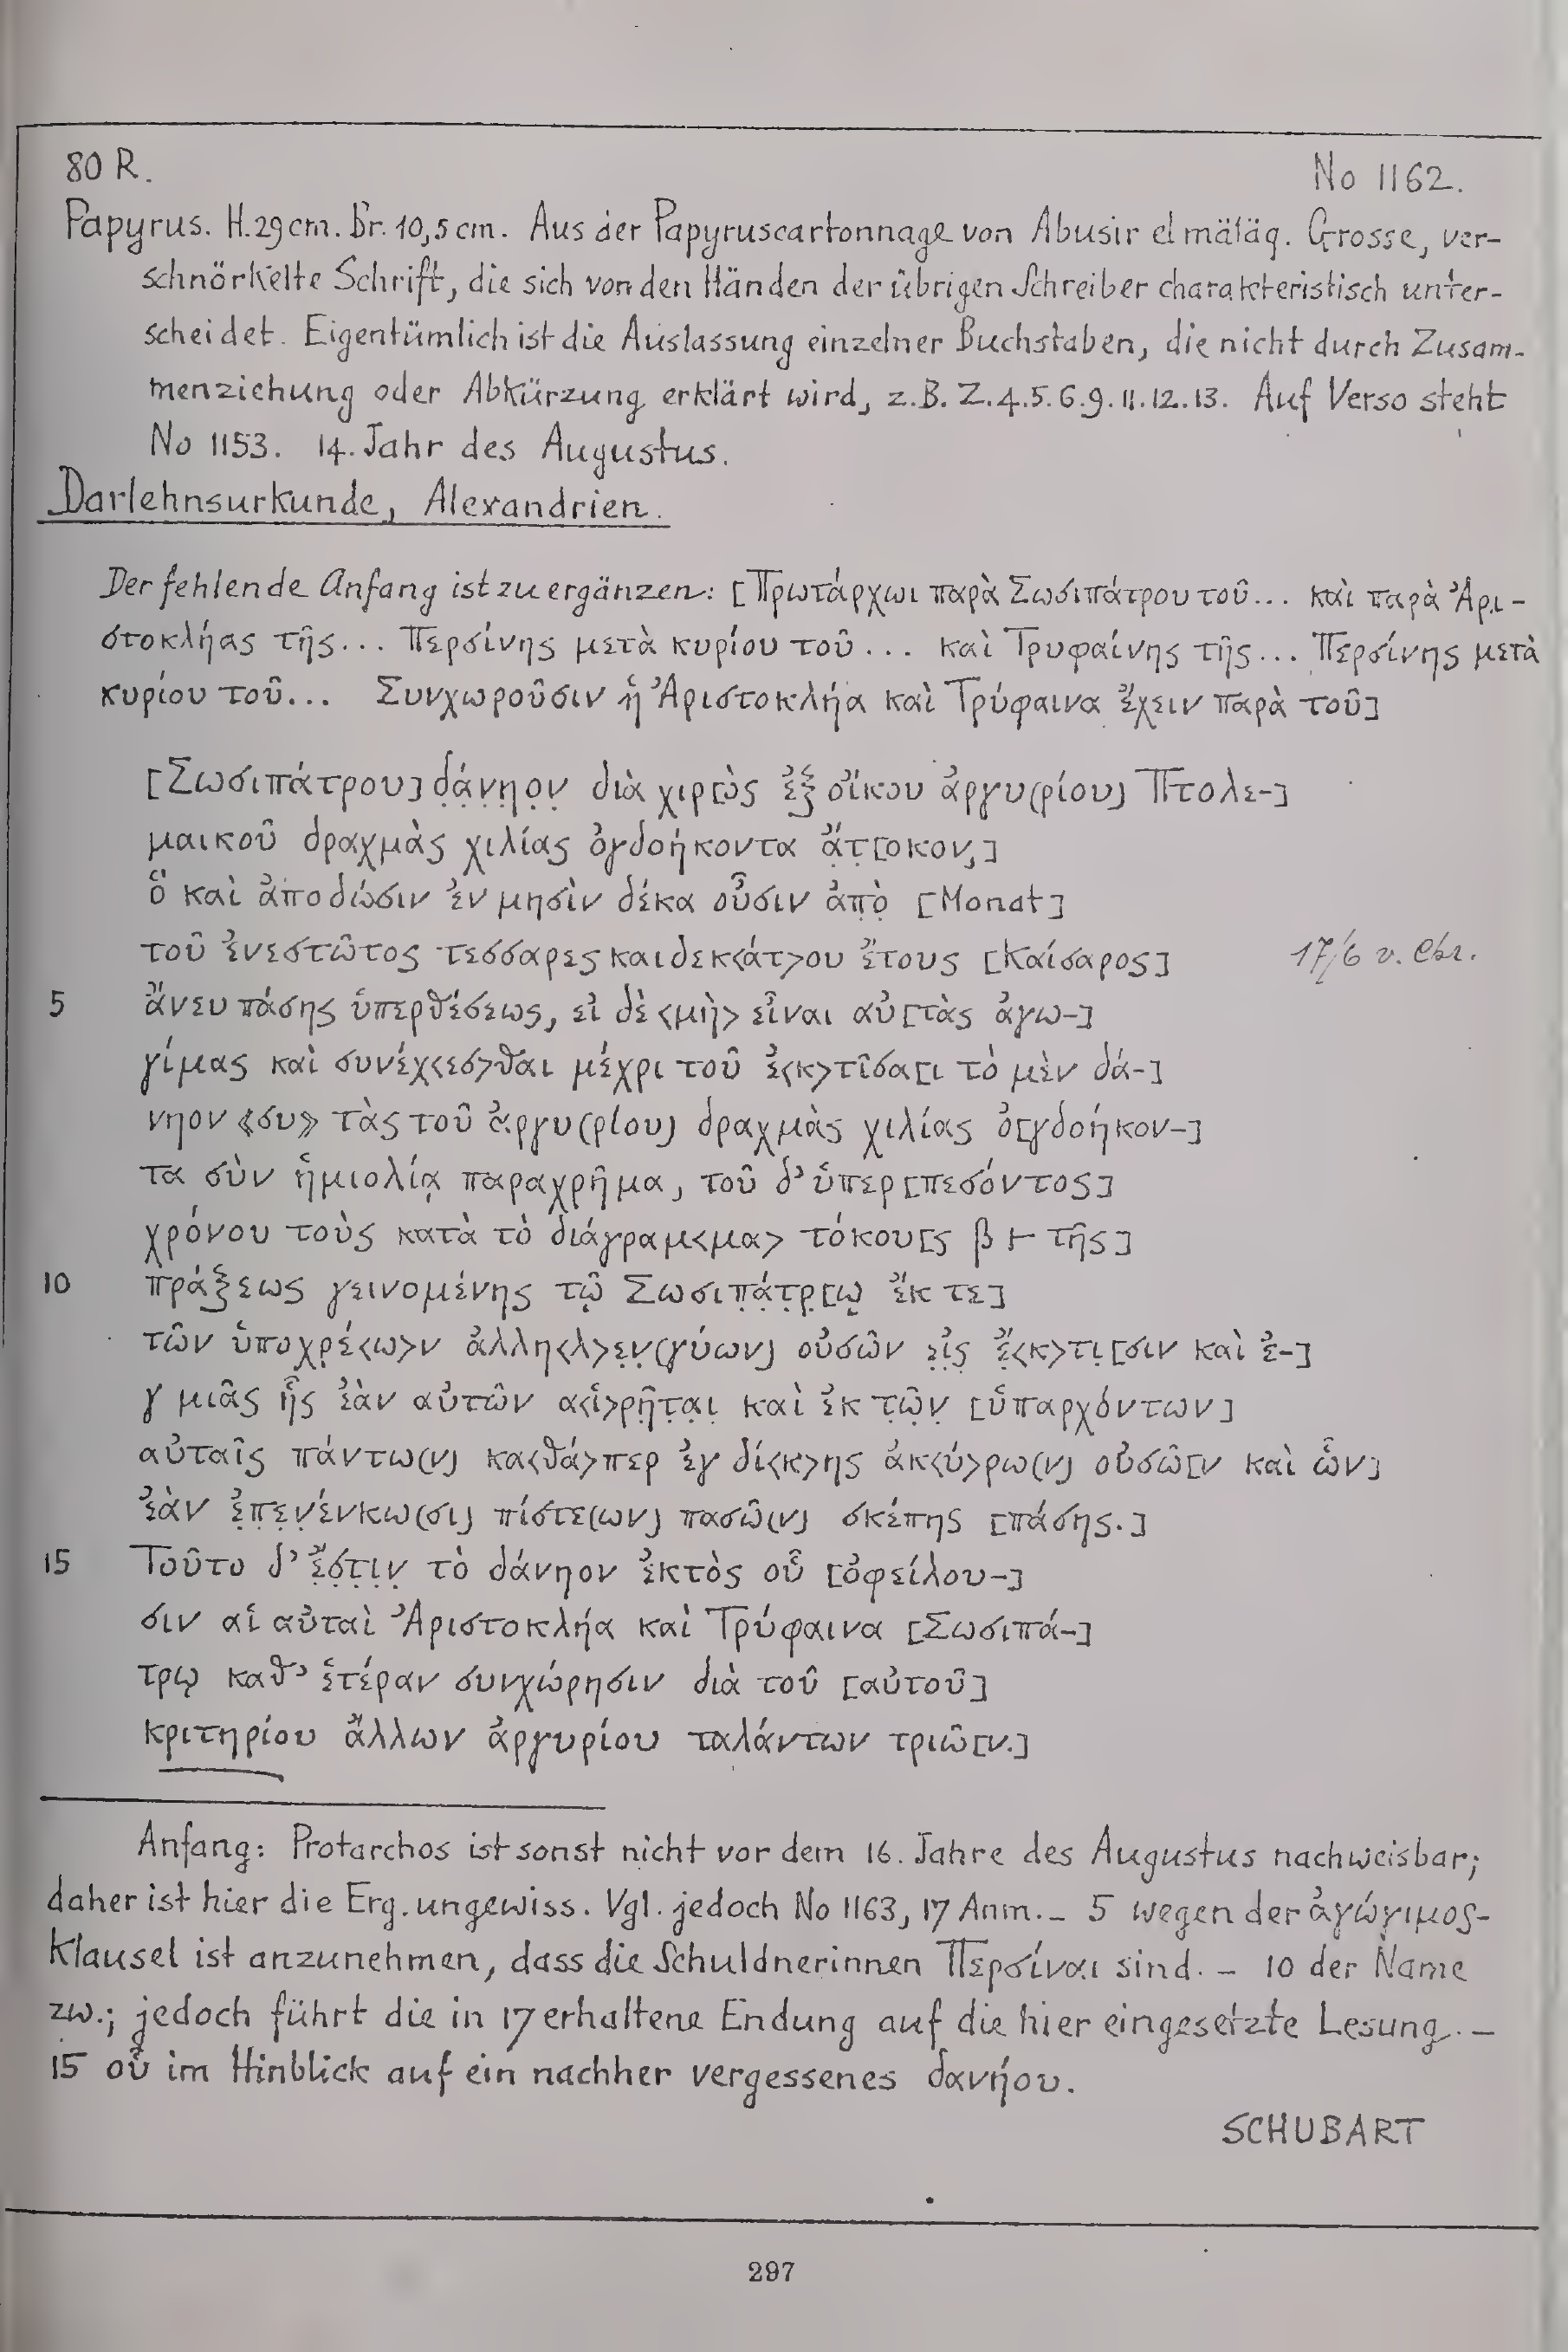 80 R. No 1162.
Papyrus. H. 29 cm. Br. 10,5 cm. Aus der Papyruscartonnage von Abusir el mäläq. Grosse, ver-
schnörkelte Schrift, die sich von den Händen der übrigen Schreiber charakteristisch unter-
scheidet. Eigentümlich ist die Auslassung einzelner Buchstaben, die nicht durch Zusam-
menziehung oder Abkürzung erklärt wird, z.B. Z. 4.5.6.9.11.12.13. Auf Verso steht
No 1153. 14. Jahr des Augustus.
Darlehnsurkunde, Alexandrien.
Der fehlende Anfang ist zu ergänzen: [Πρωτάρχωι παρὰ Σωσιπάτρου τοῦ... καὶ παρὰ Ἀρι-
στοκλήας τῆς... Περσίνης μετὰ κυρίου τοῦ... καὶ Τρυφαίνης τῆς... Περσίνης μετὰ
κυρίου τοῦ... Συνχωροῦσιν ἡ Ἀριστοκλήα καὶ Τρύφαινα ἔχειν παρὰ τοῦ]
[Σωσιπάτρου] δ̣ά̣ν̣η̣ο̣ν̣ διὰ χιρ[ὸς ἐξ οἴκου ἀργυ(ρίου) Πτολε-]
μαικοῦ δραχμὰς χιλίας ὀγδοήκοντα ἄ̣τ̣[οκον,]
ὃ καὶ ἀποδώσιν ἐν μησὶν δέκα οὖσιν ἀπ̣ὸ̣ [Monat]
τοῦ ἐνεστῶτος τεσσαρεςκαιδεκ<άτ>ου ἔτους [Καίσαρος] 17/6 v. Chr.
5 ἄνευ πάσης ὑπερθέσεως, εἰ δὲ <μὴ> εἶναι αὐ[τὰς ἀγω-]
γίμας καὶ συνέχ<εσ>θαι μέχρι τοῦ ἐ<κ>τῖσα[ι τὸ μὲν δά-]
νηον «συ» τὰς τοῦ ἀργυ(ρίου) δραχμὰς χιλίας ὀ[γδοήκον-]
τα σὺν ἡμιολίᾳ παραχρῆμα, τοῦ δ’ ὑπερ[πεσόντος]
χρόνου τοὺς κατὰ τὸ διάγραμ<μα> τόκου[ς β 𐅂 τῆς]
10 πράξεως γεινομένης τῷ Σωσιπ̣ά̣τ̣ρ̣[ῳ ἔκ τε]
τῶν ὑποχρέ<ω>ν ἀλλη<λ>ε̣ν̣(γύων) οὐσῶν ε̣ἰ̣ς̣ ἔ̣<κ>τι̣[σιν καὶ ἐ-]
γ μιᾶς ἧς ἐὰν αὐτῶν α<ἱ>ρ̣ῆ̣τ̣α̣ι̣ καὶ ἐκ τ̣ῶ̣ν̣ [ὑπαρχόντων]
αὐταῖς πάντω(ν) κα<θά>περ ἐγ δί<κ>ης ἀκ<ύ>ρω(ν) οὐσῶ[ν καὶ ὧν]
ἐὰν ἐ̣π̣ε̣ν̣έ̣νκω(σι) πίστε(ων) πασῶ(ν) σκέπης [πάσης.]
15 Τοῦτο δ’ ἔ̣σ̣τ̣ι̣ν̣ τὸ δάνηον ἐκτὸς οὗ [ὀφείλου-]
σιν αἱ αὐταὶ Ἀριστοκλήα καὶ Τρύφαινα [Σωσιπά-]
τρῳ καθ’ ἑτέραν συνχώρησιν διὰ τοῦ [αὐτοῦ]
κριτηρίου ἄλλων ἀργυρίου ταλάντων τριῶ[ν.]
Anfang: Protarchos ist sonst nicht vor dem 16. Jahre des Augustus nachweisbar;
daher ist hier die Erg. ungewiss. Vgl. jedoch No 1163, 17 Anm. – 5 wegen der ἀγώγιμος-
Klausel ist anzunehmen, dass die Schuldnerinnen Περσίναι sind. – 10 der Name
zw.; jedoch führt die in 17 erhaltene Endung auf die hier eingesetzte Lesung. –
15 οὗ im Hinblick auf ein nachher vergessenes δανήου.
SCHUBART
297